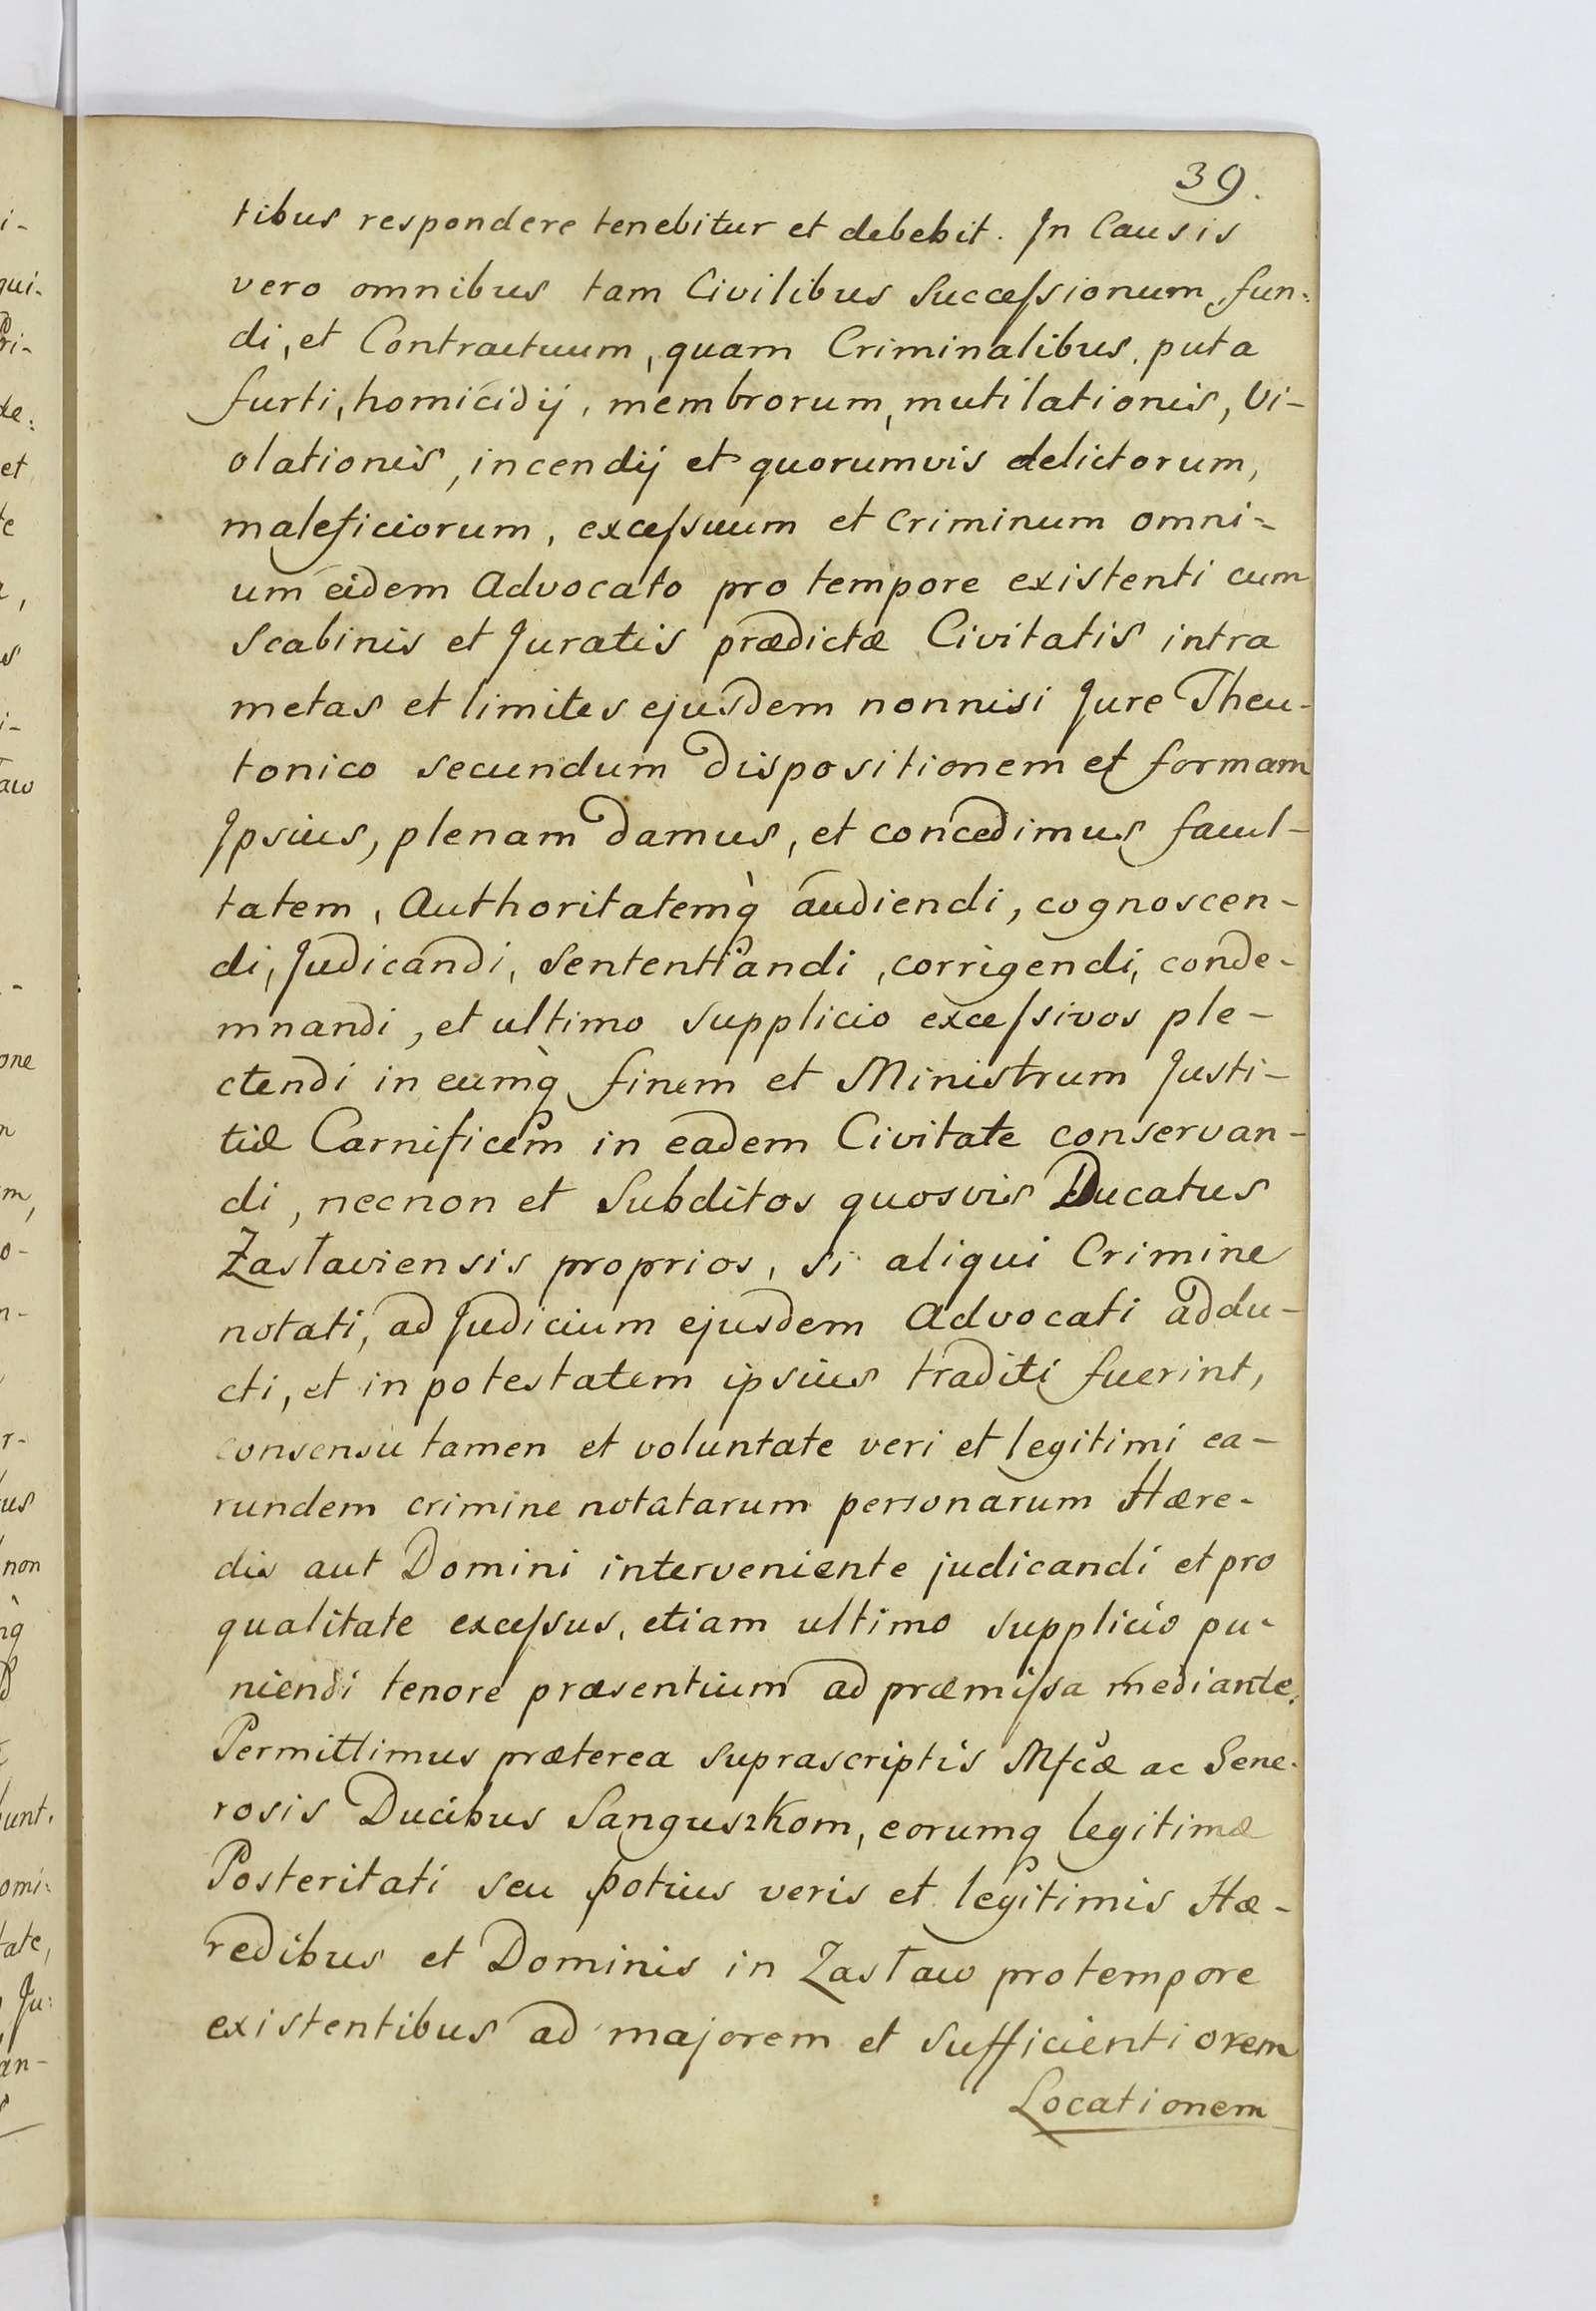 39.
tibus respondere tenebitur et debebit. In Causis
vero omnibus tam Civilibus Successionum, fun:
di, et Contractuum, quam Criminalibus, puta
furti, homicidij, membrorum, mutilationis, Vi-
olationis, incendij et quorumvis delictorum,
maleficiorum, excessuum et Criminum omni-
um eidem Advocato pro tempore existenti cum
Scabinis et Juratis prædictæ Civitatis intra
metas et limites ejusdem nonnisi Jure Theu-
tonico secundum dispositionem et formam
Ipsius, plenam damus, et concedimus facul-
tatem, Authoritatemq̀ audiendi, cognoscen-
di, Judicandi, Sententiandi, corrigendi, conde-
mnandi, et ultimo supplicio excessivos ple-
ctendi in eumq̀ finem et Ministrum Justi-
tiæ Carnificem in eadem Civitate conservan-
di, necnon et Subditos quosvis Ducatus
Zasławiensis proprios, si aliqui Crimine
notati, ad Judicium ejusdem Advocati addu-
cti, et in potestatem ipsius traditi fuerint,
consensu tamen et voluntate veri et legitimi ea-
rundem crimine notatarum personarum Hære-
dis aut Domini interveniente judicandi et pro
qualitate excessus, etiam ultimo supplicio pu-
niendi tenore præsentium ad præmissa mediante.
Permittimus præterea suprascriptis Mfcæ ac Gene-
rosis Ducibus Sanguszkom, eorumq legitimæ
Posteritati seu potius veris et legitimis Hæ-
redibus et Dominis in Zasław pro tempore
existentibus ad majorem et sufficientiorem
Locationem
i-
qui-
ri-
de:
et
te
i-
aw
one
n
m,
o-
n-
r-
us
non
unt.
omi:
tate,
Ju:
an-